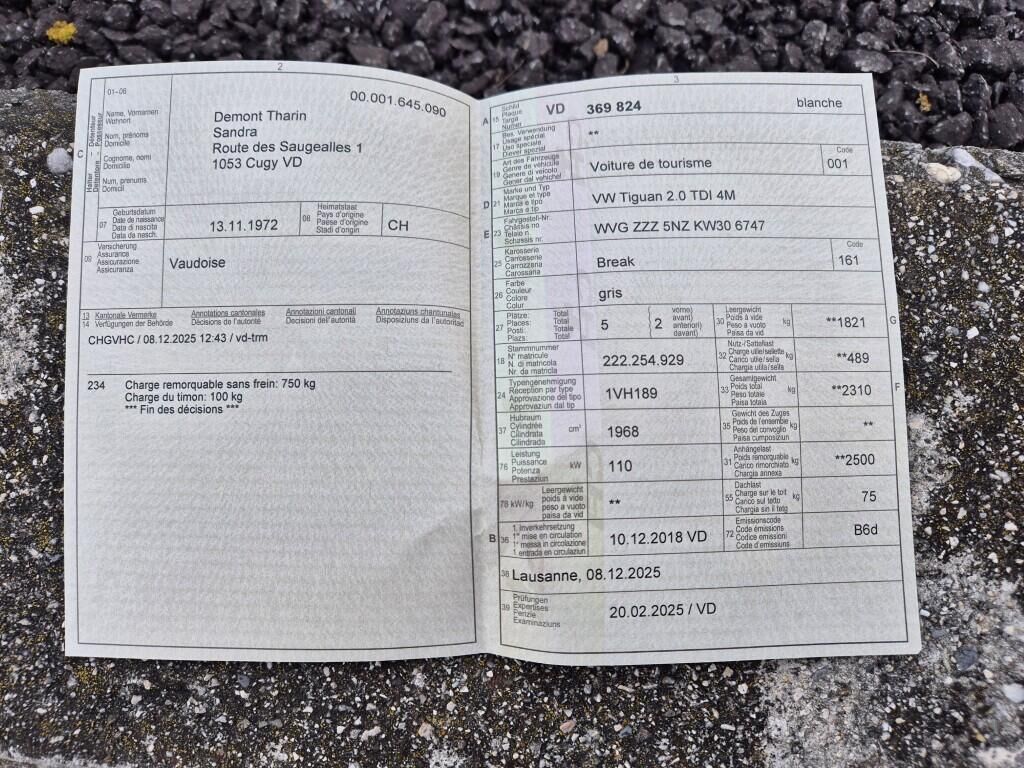 2
01–06
00.001.645.090
C
Halter - Détenteur
Detentore - Possessur
Name, Vornamen
Wohnort
Nom, prénoms
Domicile
Cognome, nomi
Domicilio
Num, prenums
Domicil
Demont Tharin
Sandra
Route des Saugealles 1
1053 Cugy VD
07
Geburtsdatum
Date de naissance
Data di nascita
Data da nasch.
13.11.1972
08
Heimatstaat
Pays d'origine
Paese d'origine
Stadi d'origin
CH
09
Versicherung
Assurance
Assicurazione
Assicuranza
Vaudoise
13 Kantonale Vermerke Annotations cantonales Annotazioni cantonali Annotaziuns chantunalas
14 Verfügungen der Behörde Décisions de l'autorité Decisioni dell'autorità Disposiziuns da l'autoritad
CHGVHC / 08.12.2025 12:43 / vd-trm
234 Charge remorquable sans frein: 750 kg
Charge du timon: 100 kg
*** Fin des décisions ***
3
A 15
Schild
Plaque
Targa
Numer
VD 369 824 blanche
17
Bes. Verwendung
Usage spécial
Uso speciale
Diever spezial
**
19
Art des Fahrzeugs
Genre de véhicule
Genere di veicolo
Gener dal vehichel
Voiture de tourisme
Code
001
D 21
Marke und Typ
Marque et type
Marca e tipo
Marca e tip
VW Tiguan 2.0 TDI 4M
E 23
Fahrgestell-Nr.
Châssis no
Telaio n.
Schassis nr.
WVG ZZZ 5NZ KW30 6747
25
Karosserie
Carrosserie
Carrozzeria
Carossaria
Break
Code
161
26
Farbe
Couleur
Colore
Colur
gris
27
Plätze: Total
Places: Total
Posti: Totale
Plazs: Total
5
( 2
vorne)
avant)
anteriori)
davant)
30
Leergewicht
Poids à vide
Peso a vuoto
Paisa da vid
kg
**1821
G
18
Stammnummer
N° matricule
N. di matricola
Nr. da matricla
222.254.929
32
Nutz-/Sattellast
Charge utile/sellette
Carico utile/sella
Chargia utila/sella
kg
**489
24
Typengenehmigung
Réception par type
Approvazione del tipo
Approvaziun dal tip
1VH189
33
Gesamtgewicht
Poids total
Peso totale
Paisa totala
kg
**2310
F
37
Hubraum
Cylindrée
Cilindrata
Cilindrada
cm³
1968
35
Gewicht des Zuges
Poids de l'ensemble
Peso del convoglio
Paisa cumposiziun
kg
**
76
Leistung
Puissance
Potenza
Prestaziun
kW
110
31
Anhängelast
Poids remorquable
Carico rimorchiato
Chargia annexa
kg
**2500
78 kW/kg
Leergewicht
poids à vide
peso a vuoto
paisa da vid
**
55
Dachlast
Charge sur le toit
Carico sul tetto
Chargia sin il tetg
kg
75
B 36
1. Inverkehrsetzung
1re mise en circulation
1a messa in circolazione
1 entrada en circulaziun
10.12.2018 VD
72
Emissionscode
Code émissions
Codice emissioni
Code d'emissiuns
B6d
38 Lausanne, 08.12.2025
39
Prüfungen
Expertises
Perizie
Examinaziuns
20.02.2025 / VD